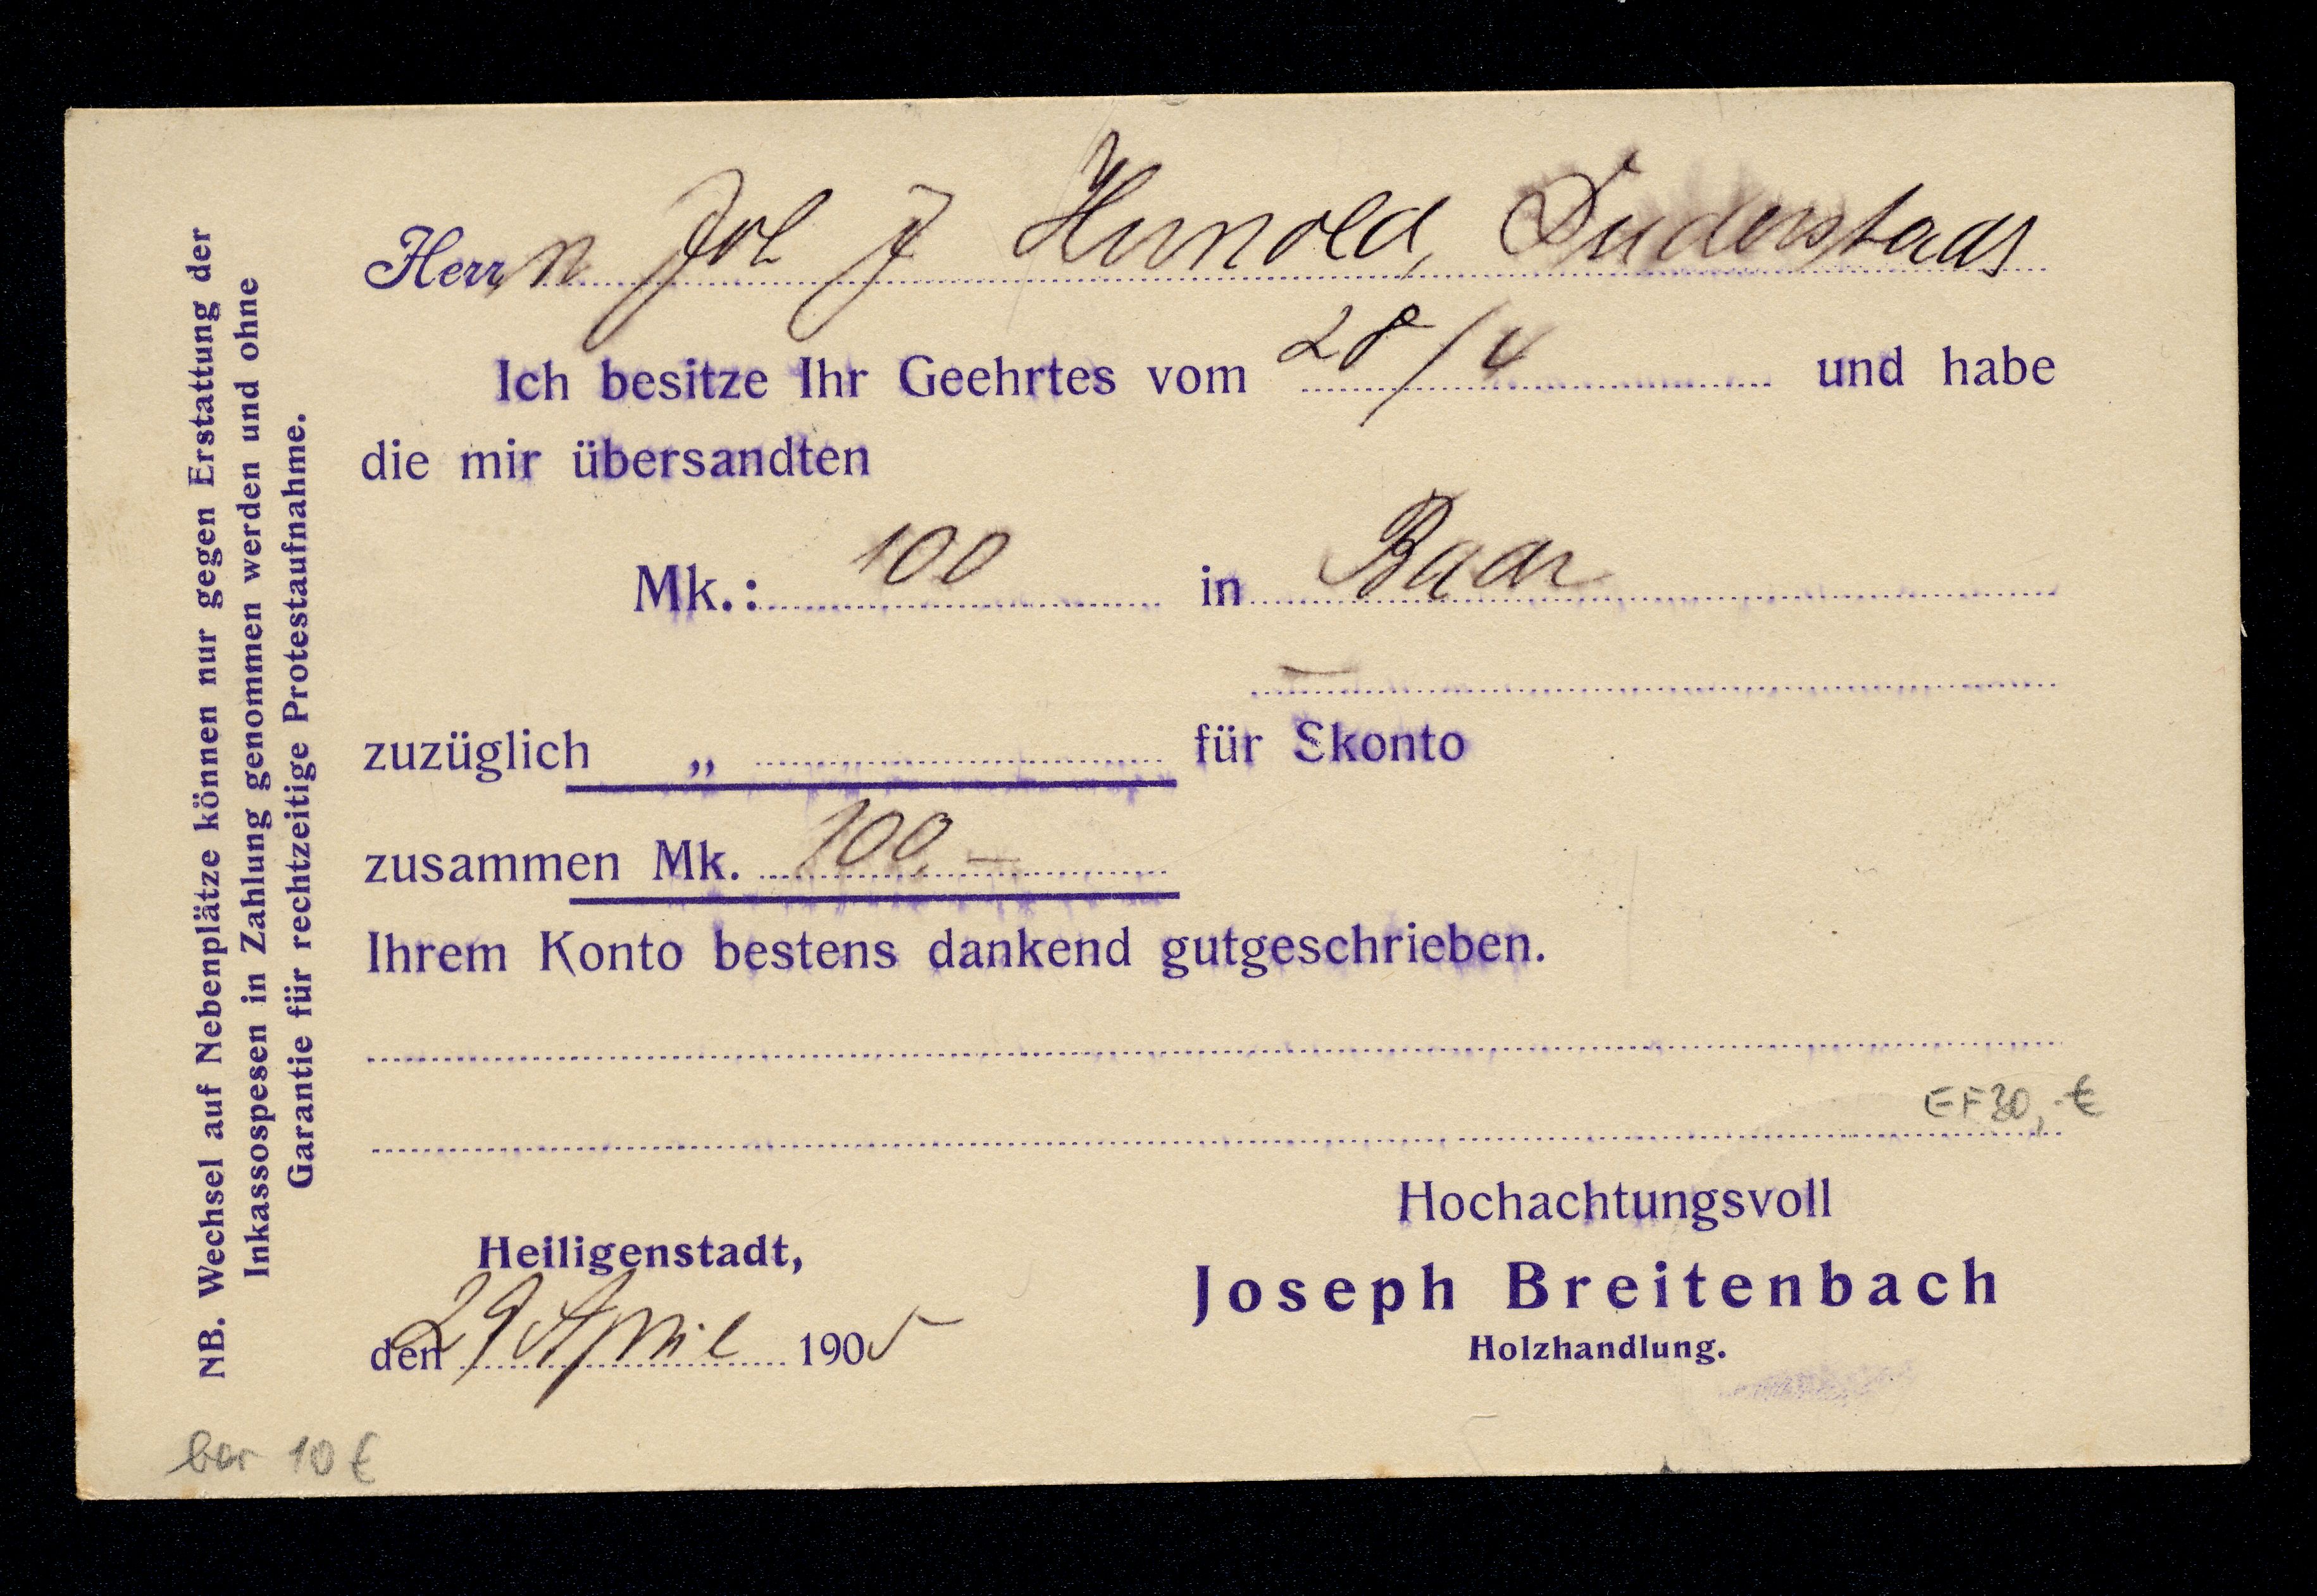 Herrn Joh J Hunold, Duderstadt
Ich besitze Ihr Geehrtes vom 28/4 und habe
die mir übersandten
Mk.: 100 in Baar
—
zuzüglich „ für Skonto
zusammen Mk. 100,—
Ihrem Konto bestens dankend gutgeschrieben.
EF 30,-€
Hochachtungsvoll
Heiligenstadt,
Joseph Breitenbach
den 29 April 1905
Holzhandlung.
bar 10 €
NB. Wechsel auf Nebenplätze können nur gegen Erstattung der
Inkassospesen in Zahlung genommen werden und ohne
Garantie für rechtzeitige Protestaufnahme.